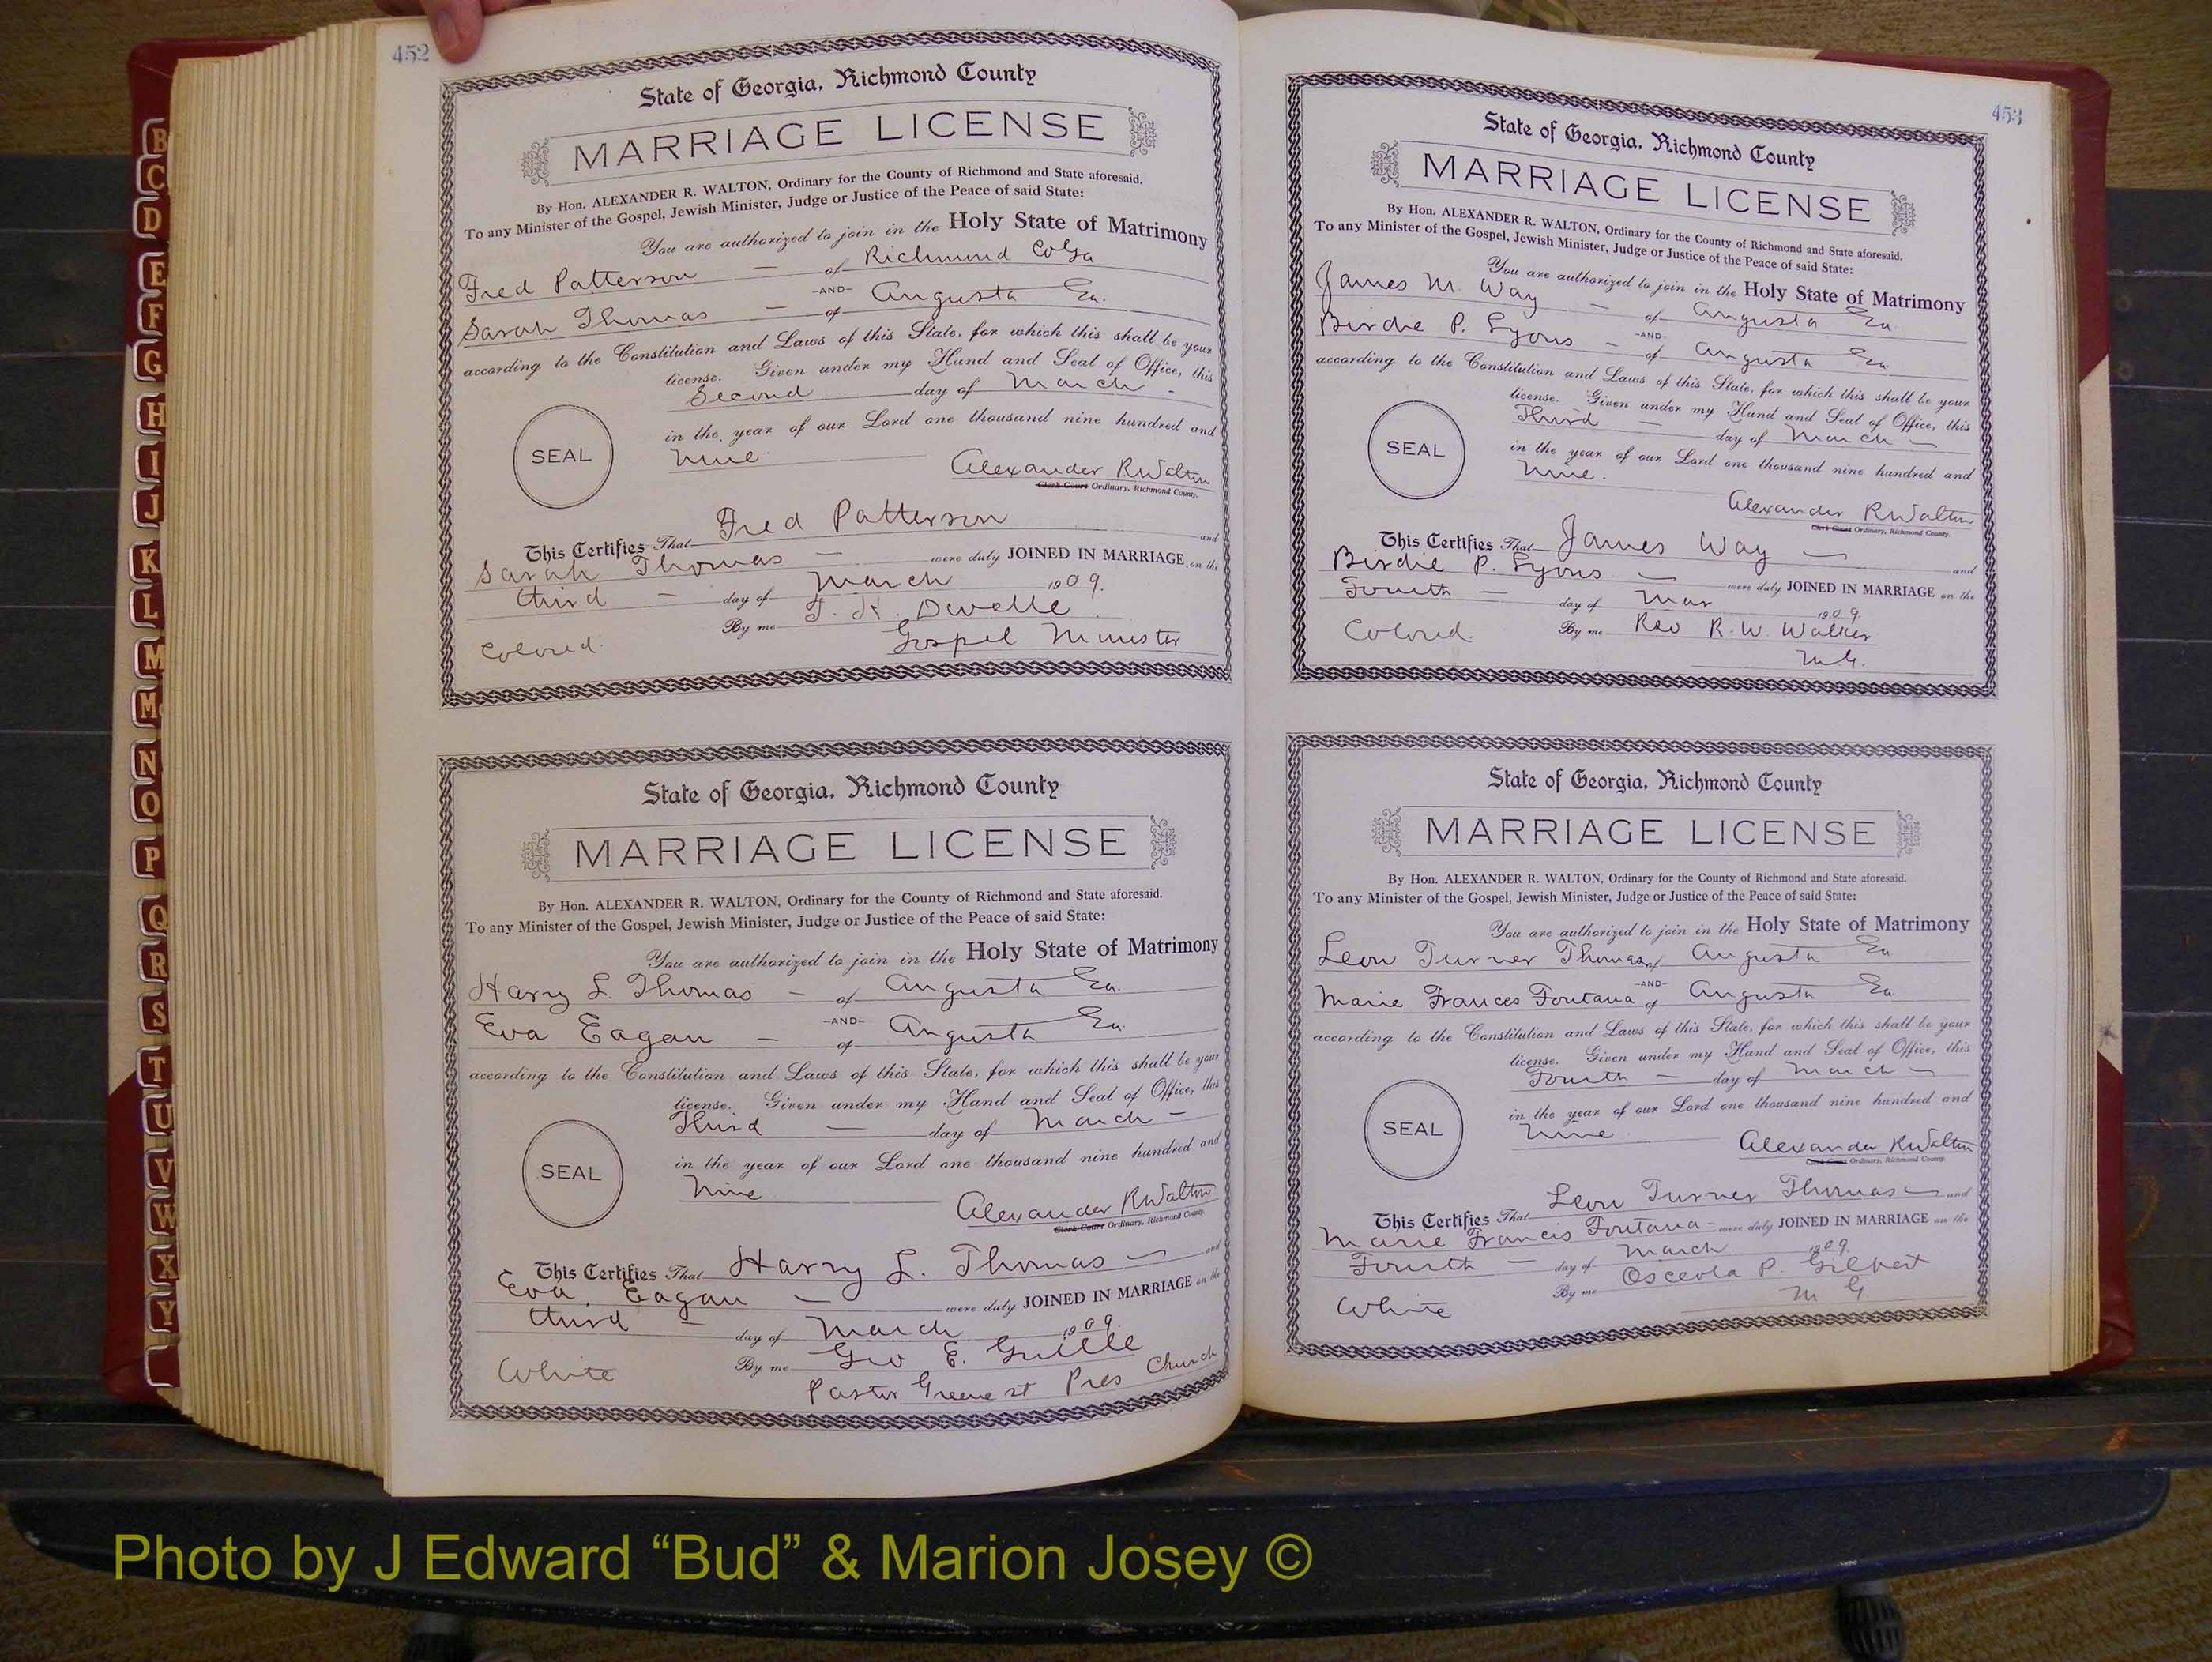 452
State of Georgia, Richmond County
MARRIAGE LICENSE
By Hon. ALEXANDER R. WALTON, Ordinary for the County of Richmond and State aforesaid.
To any Minister of the Gospel, Jewish Minister, Judge or Justice of the Peace of said State:
You are authorized to join in the Holy State of Matrimony
Fred Patterson — of Richmond Co Ga
-AND-
Sarah Thomas — of Augusta Ga.
according to the Constitution and Laws of this State, for which this shall be your
license. Given under my Hand and Seal of Office, this
Second day of March -
in the year of our Lord one thousand nine hundred and
nine
SEAL
Alexander R Walton
Clerk Court Ordinary, Richmond County.
This Certifies That Fred Patterson and
Sarah Thomas — were duly JOINED IN MARRIAGE on the
third — day of March 1909.
By me T. K. Dwelle
Colored. Gospel Minister
State of Georgia, Richmond County
MARRIAGE LICENSE
By Hon. ALEXANDER R. WALTON, Ordinary for the County of Richmond and State aforesaid.
To any Minister of the Gospel, Jewish Minister, Judge or Justice of the Peace of said State:
You are authorized to join in the Holy State of Matrimony
Harry L. Thomas — of Augusta Ga.
-AND-
Eva Eagan — of Augusta Ga.
according to the Constitution and Laws of this State, for which this shall be your
license. Given under my Hand and Seal of Office, this
Third — day of March —
in the year of our Lord one thousand nine hundred and
nine
SEAL
Alexander R Walton
Clerk Court Ordinary, Richmond County.
This Certifies That Harry L. Thomas — and
Eva Eagan — were duly JOINED IN MARRIAGE on the
third — day of March 1909.
By me Geo E. Guille
White Pastor Greene st Pres Church
453
State of Georgia, Richmond County
MARRIAGE LICENSE
By Hon. ALEXANDER R. WALTON, Ordinary for the County of Richmond and State aforesaid.
To any Minister of the Gospel, Jewish Minister, Judge or Justice of the Peace of said State:
You are authorized to join in the Holy State of Matrimony
James M. Way — of Augusta Ga
-AND-
Birdie P. Lyons — of Augusta Ga.
according to the Constitution and Laws of this State, for which this shall be your
license. Given under my Hand and Seal of Office, this
Third — day of March —
in the year of our Lord one thousand nine hundred and
nine.
SEAL
Alexander R Walton
Clerk Court Ordinary, Richmond County.
This Certifies That James Way — and
Birdie P. Lyons — were duly JOINED IN MARRIAGE on the
Fourth — day of Mar 1909.
Colored. By me Rev R. W. Walker
M.G.
State of Georgia, Richmond County
MARRIAGE LICENSE
By Hon. ALEXANDER R. WALTON, Ordinary for the County of Richmond and State aforesaid.
To any Minister of the Gospel, Jewish Minister, Judge or Justice of the Peace of said State:
You are authorized to join in the Holy State of Matrimony
Leon Turner Thomas of Augusta Ga
-AND-
Marie Frances Fontana of Augusta Ga.
according to the Constitution and Laws of this State, for which this shall be your
license. Given under my Hand and Seal of Office, this
Fourth — day of March —
in the year of our Lord one thousand nine hundred and
nine
SEAL
Alexander R Walton
Clerk Court Ordinary, Richmond County.
This Certifies That Leon Turner Thomas — and
Marie Francis Fontana - were duly JOINED IN MARRIAGE on the
Fourth — day of March 1909.
By me Osceola P. Gilbert
White M G
B
C
D
E
F
G
H
I
J
K
L
M
Mc
N
O
P
Q
R
S
T
U
V
W
X
Y
Photo by J Edward “Bud” & Marion Josey ©